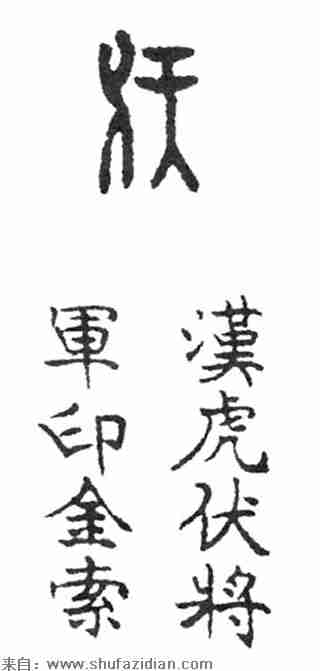 漢虎伏將
軍印金索
来自:www.shufazidian.com